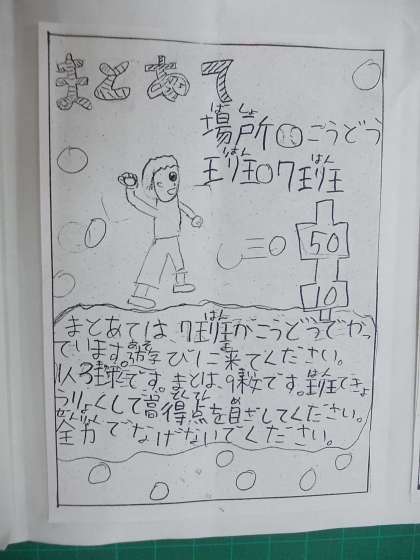 まとあて
場所 こうどう
班 7班
50
10
まとあては、7班がこうどうでやっ
ています。遊びに来てください。
1人3球です。まとは、9まいです。班できょ
うりょくして高得点を目ざしてください。
全力でなげないでください。